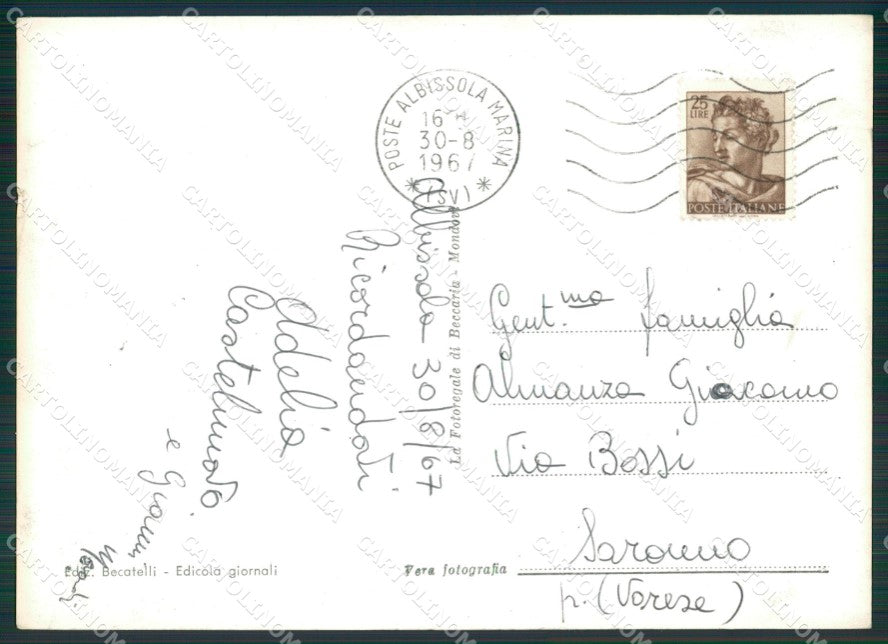 POSTE ALBISSOLA MARINA
16 H
30-8
1967
(SV)
25
LIRE
POSTE ITALIANE
Albissola 30/8/67
Ricordandoti
Adelia
Castelnuovo
e Gianni
La Fotoregale di Beccaria - Mondovì
Gent.ma famiglia
Almanza Giacomo
Via Bossi
Saronno
p. (Varese)
Ediz. Becatelli - Edicola giornali
Vera fotografia
CARTOLINOMANIA